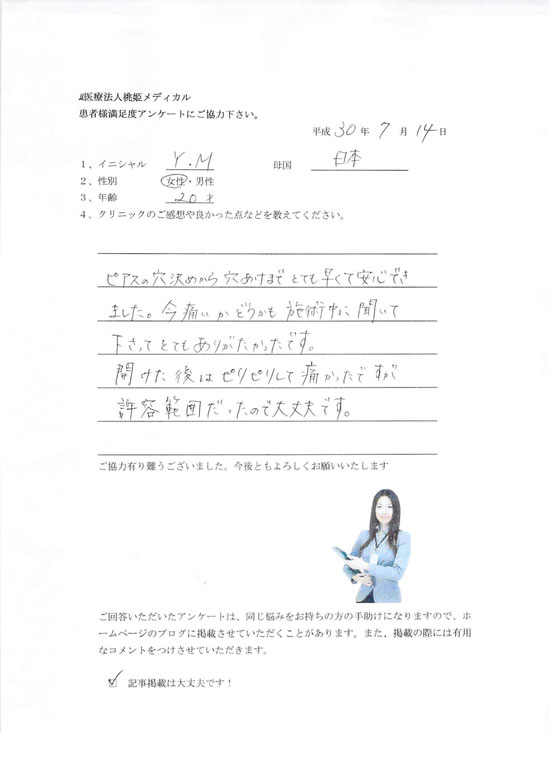 医療法人桃姫メディカル
患者様満足度アンケートにご協力下さい。
平成 30 年 7 月 14 日
1、イニシャル Y.M 母国 日本
2、性別 女性・男性
3、年齢 20才
4、クリニックのご感想や良かった点などを教えてください。
ピアスの穴決めから穴あけまでとても早くて安心でき
ました。今痛いかどうかも施術中に聞いて
下さってとてもありがたかったです。
開けた後はピリピリして痛かったですが
許容範囲だったので大丈夫です。
ご協力有り難うございました。今後ともよろしくお願いいたします
ご回答いただいたアンケートは、同じ悩みをお持ちの方の手助けになりますので、ホ
ームページのブログに掲載させていただくことがあります。また、掲載の際には有用
なコメントをつけさせていただきます。
☑ 記事掲載は大丈夫です！